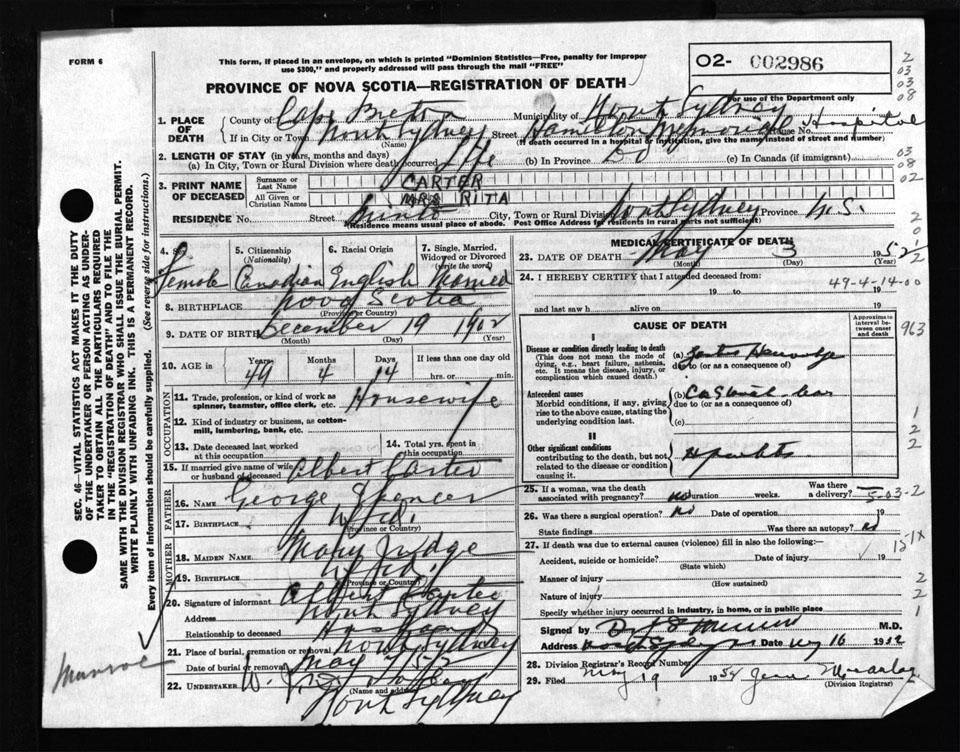 FORM 6
This form, if placed in an envelope, on which is printed "Dominion Statistics—Free, penalty for improper
use $300," and properly addressed will pass through the mail "FREE"
O2- 002986
PROVINCE OF NOVA SCOTIA—REGISTRATION OF DEATH
For use of the Department only
1. PLACE OF DEATH
County of Cape Breton Municipality of North Sydney
If in City or Town North Sydney Street Hamilton Memorial House No. Hospital
(Name) (If death occurred in a hospital or institution, give the name instead of street and number)
2. LENGTH OF STAY (in years, months and days)
(a) In City, Town or Rural Division where death occurred Life (b) In Province Do (c) In Canada (if immigrant)
3. PRINT NAME OF DECEASED
Surname or Last Name CARTER
All Given or Christian Names MRS RITA
RESIDENCE No. Street City, Town or Rural Division North Sydney Province N.S.
(Residence means usual place of abode. Post Office Address for residents in rural parts not sufficient)
4. Sex Female
5. Citizenship (Nationality) Canadian
6. Racial Origin English
7. Single, Married, Widowed or Divorced (write the word) Married
8. BIRTHPLACE Nova Scotia
(Province or Country)
9. DATE OF BIRTH December 19 1902
(Month) (Day) (Year)
10. AGE in Years Months Days If less than one day old
49 4 14 hrs. or min.
OCCUPATION
11. Trade, profession, or kind of work as spinner, teamster, office clerk, etc. Housewife
12. Kind of industry or business, as cotton-mill, lumbering, bank, etc.
13. Date deceased last worked at this occupation
14. Total yrs. spent in this occupation
15. If married give name of wife or husband of deceased Albert Carter
FATHER
16. NAME George Spencer
17. BIRTHPLACE Nfld.
(Province or Country)
MOTHER
18. MAIDEN NAME Mary Judge
19. BIRTHPLACE Nfld.
(Province or Country)
20. Signature of informant Albert Carter
Address North Sydney
Relationship to deceased Husband
21. Place of burial, cremation or removal North Sydney
Date of burial or removal May 7/52
22. UNDERTAKER W. J.
(Name and address)
North Sydney
MEDICAL CERTIFICATE OF DEATH
23. DATE OF DEATH May 3 1952
(Month) (Day) (Year)
24. I HEREBY CERTIFY that I attended deceased from:
19 to 19
49-4-14-00
and last saw h alive on 19
CAUSE OF DEATH
Approximate interval between onset and death
963
I
Disease or condition directly leading to death
(This does not mean the mode of dying, e.g., heart failure, asthenia, etc. It means the disease, injury, or complication which caused death.)
(a)
due to (or as a consequence of)
Antecedent causes
Morbid conditions, if any, giving rise to the above cause, stating the underlying condition last.
(b)
due to (or as a consequence of)
(c)
II
Other significant conditions contributing to the death, but not related to the disease or condition causing it.
25. If a woman, was the death associated with pregnancy? no Duration weeks. Was there a delivery? 5-03-2
26. Was there a surgical operation? No Date of operation 19
State findings Was there an autopsy? No
27. If death was due to external causes (violence) fill in also the following:—
Accident, suicide or homicide? Date of injury 19
(State which)
Manner of injury (How sustained)
Nature of injury
Specify whether injury occurred in industry, in home, or in public place
Signed by M.D.
Address Date 16 1952
28. Division Registrar's Record Number
29. Filed May 19 19
(Division Registrar)
SEC. 46—VITAL STATISTICS ACT MAKES IT THE DUTY
OF THE UNDERTAKER OR PERSON ACTING AS UNDER-
TAKER TO OBTAIN ALL THE PARTICULARS REQUIRED
IN THE "REGISTRATION OF DEATH" AND TO FILE THE
SAME WITH THE DIVISION REGISTRAR WHO SHALL ISSUE THE BURIAL PERMIT.
WRITE PLAINLY WITH UNFADING INK. THIS IS A PERMANENT RECORD.
Every item of information should be carefully supplied. (See reverse side for instructions.)
Munroe